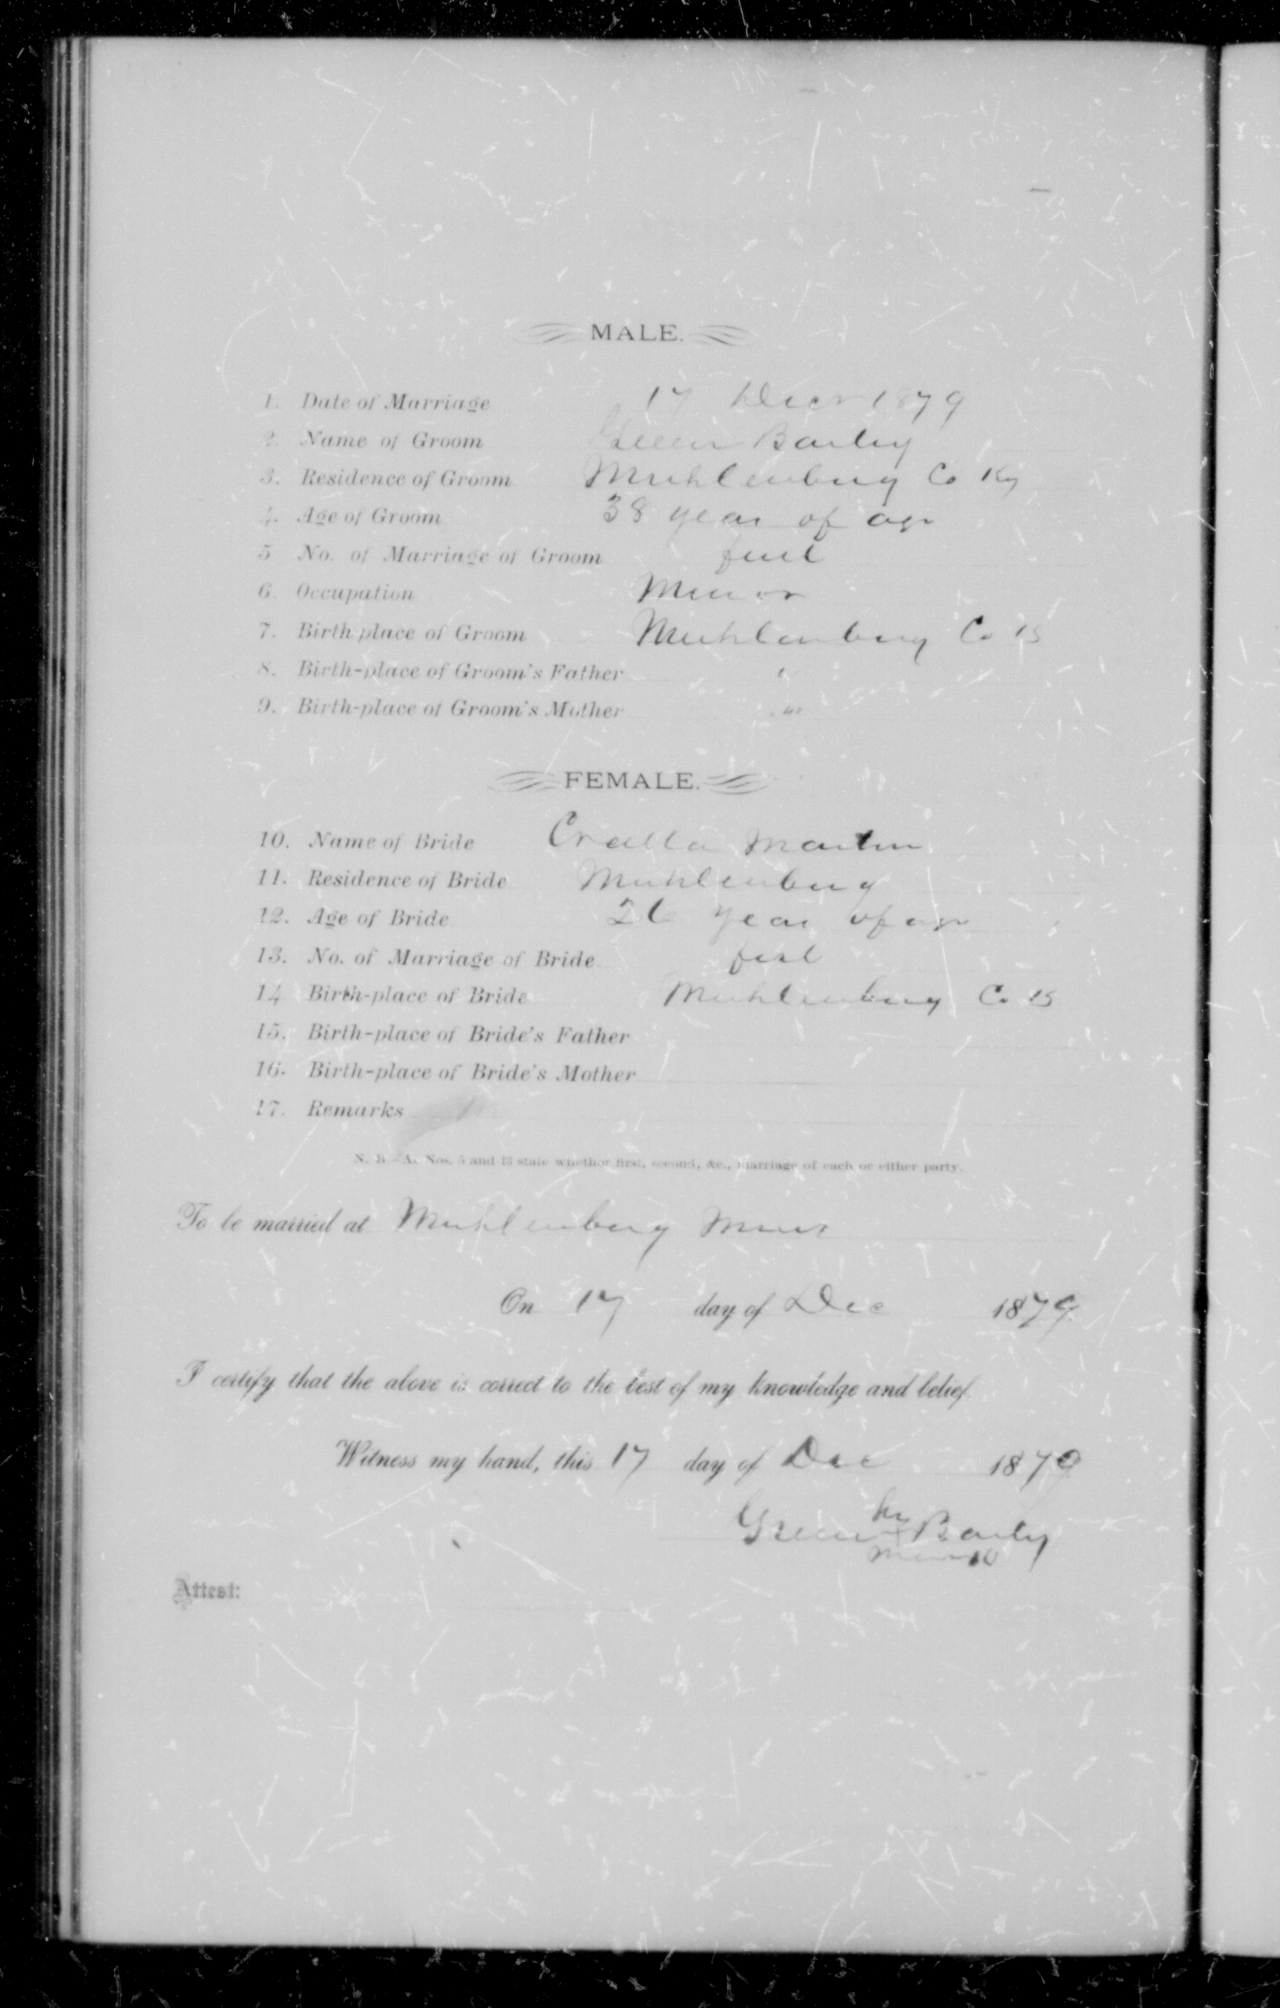 MALE.
1. Date of Marriage 17 Decr 1879
2. Name of Groom Green Barley
3. Residence of Groom Muhlenburg Co Ky
4. Age of Groom 38 year of age
5 No. of Marriage of Groom first
6. Occupation Minor
7. Birth place of Groom Muhlenburg Co K
8. Birth-place of Groom's Father "
9. Birth-place of Groom's Mother "
FEMALE.
10. Name of Bride Martin
11. Residence of Bride Muhlenburg
12. Age of Bride 26 year of age
13. No. of Marriage of Bride first
14 Birth-place of Bride Muhlenburg Co K
15. Birth-place of Bride's Father
16. Birth-place of Bride's Mother
17. Remarks
N. B.—A. Nos. 5 and 13 state whether first, second, &c., marriage of each or either party.
To be married at Muhlenburg Mines
On 17 day of Dec 1879.
I certify that the above is correct to the best of my knowledge and belief.
Witness my hand, this 17 day of Dec 1879
Green his x Barley
Attest: